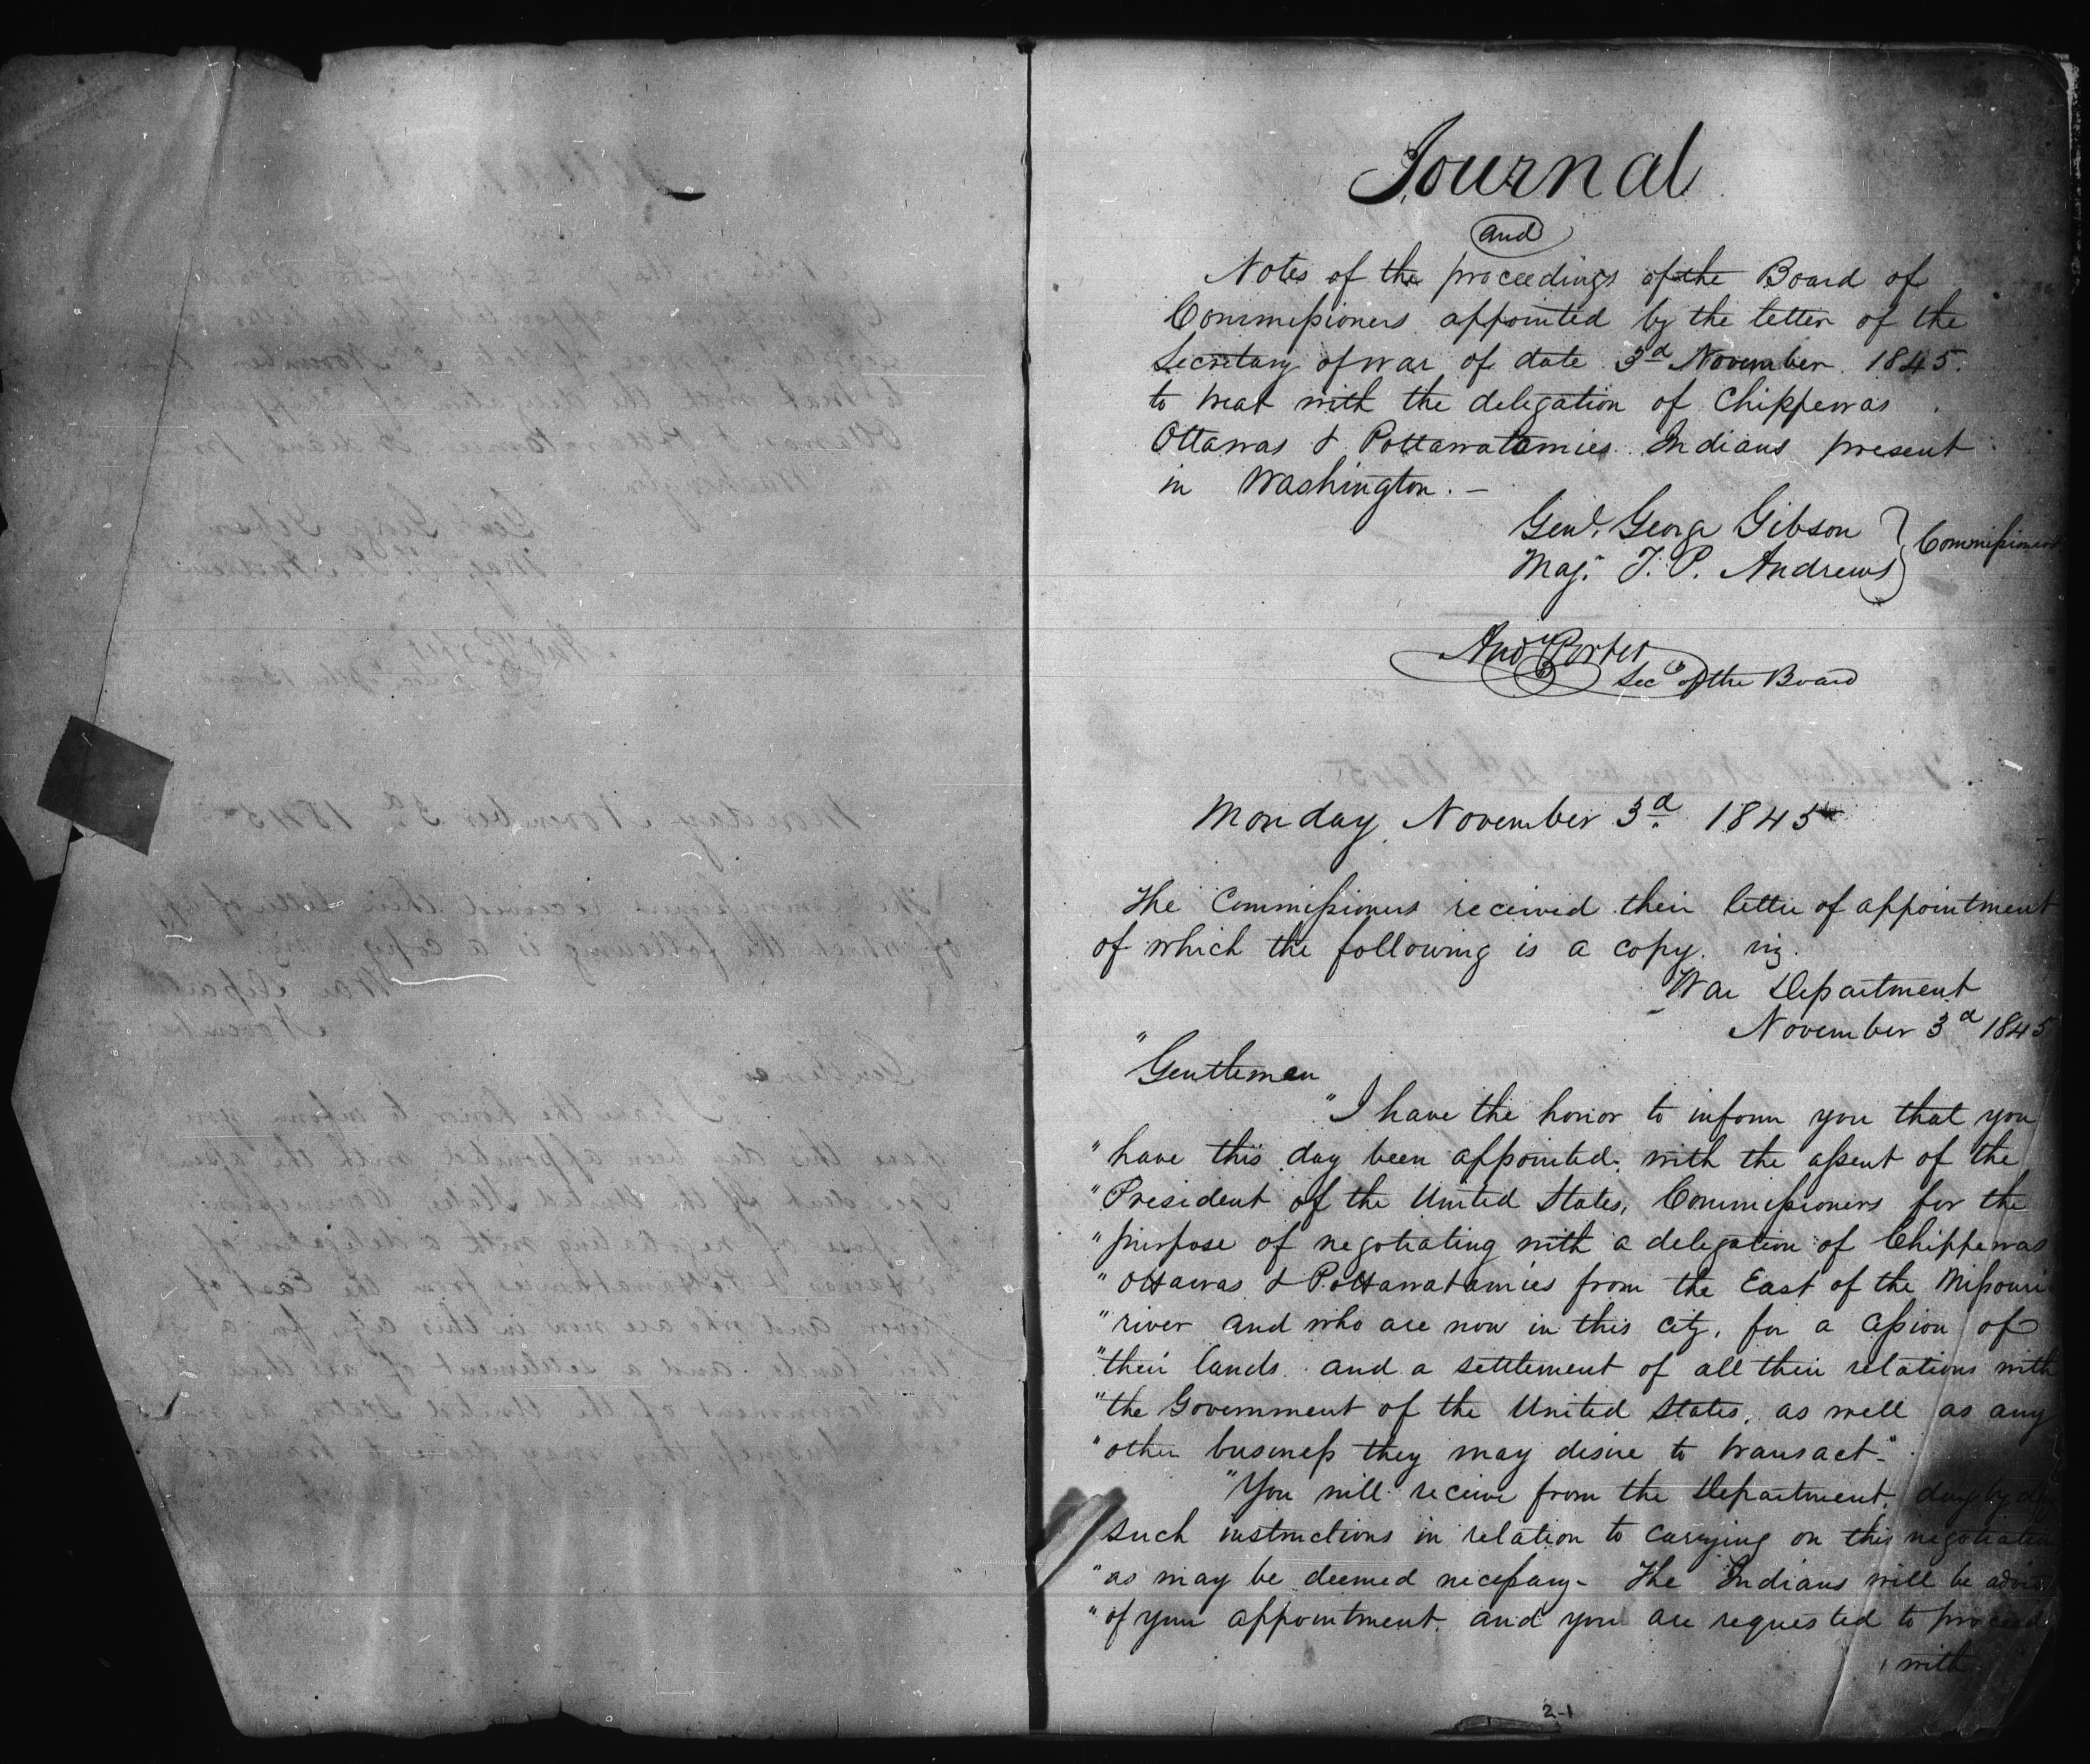 Journal
and
Notes of the proceedings of the Board of
Commissioners appointed by the letter of the
Secretary of War of date 3d November. 1845.
to treat with the delegation of Chippewas
Ottawas & Pottawatamies Indians present
in Washington. –
Genl. George Gibson } Commissioners
Maj. T. P. Andrews
Andw Porter
Secy of the Board
Monday, November 3d. 1845
The Commissioners received their letter of appointment
of which the following is a copy. viz.
War Department
November 3d 1845
"Gentlemen
"I have the honor to inform you that you
"have this day been appointed, with the assent of the
"President of the United States, Commissioners for the
"purpose of negotiating with a delegation of Chippewas
"Ottawas & Pottawatamies from the East of the Missouri
"river and who are now in this city, for a cession of
"their lands. and a settlement of all their relations with
"the Government of the United States, as well as any
"other business they may desire to transact-"
"You will receive from the Department, day by day
such instructions in relation to carrying on this negotiation
"as may be deemed necessary- The Indians will be advised
"of your appointment. and you are requested to proceed
with
2-1